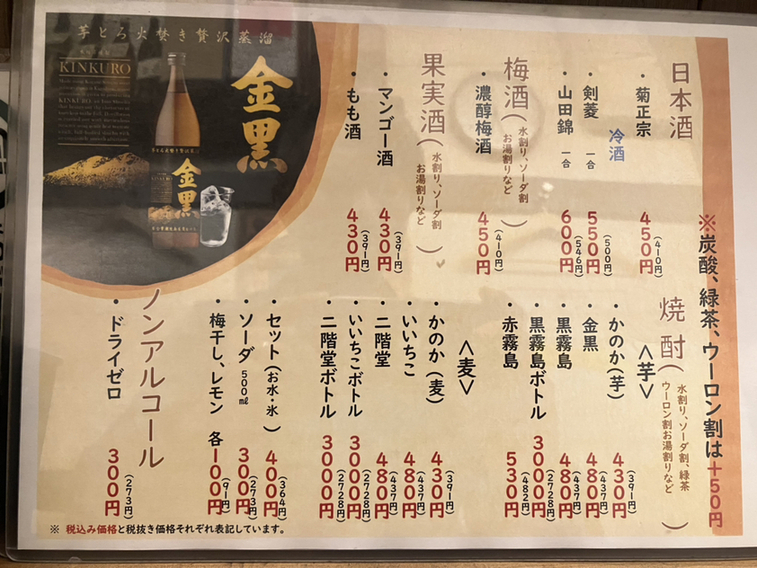 日本酒
・菊正宗 450円(410円)
冷酒
・剣菱 一合 550円(500円)
・山田錦 一合 600円(546円)
梅酒(水割り、ソーダ割 お湯割りなど)
・濃醇梅酒 450円(410円)
果実酒(水割り、ソーダ割 お湯割りなど)
・マンゴー酒 430円(391円)
・もも酒 430円(391円)
芋とろ火焚き贅沢蒸溜
KINKURO
金黒
金黒
※炭酸、緑茶、ウーロン割は+50円
焼酎(水割り、ソーダ割、緑茶 ウーロン割お湯割りなど)
<芋>
・かのか(芋) 430円(391円)
・金黒 480円(437円)
・黒霧島 480円(437円)
・黒霧島ボトル 3000円(2728円)
・赤霧島 530円(482円)
<麦>
・かのか(麦) 430円(391円)
・いいちこ 480円(437円)
・二階堂 480円(437円)
・いいちこボトル 3000円(2728円)
・二階堂ボトル 3000円(2728円)
・セット(お水・氷) 400円(364円)
・ソーダ 500㎖ 300円(273円)
・梅干し、レモン 各100円(91円)
ノンアルコール
・ドライゼロ 300円(273円)
※ 税込み価格と税抜き価格それぞれ表記しています。